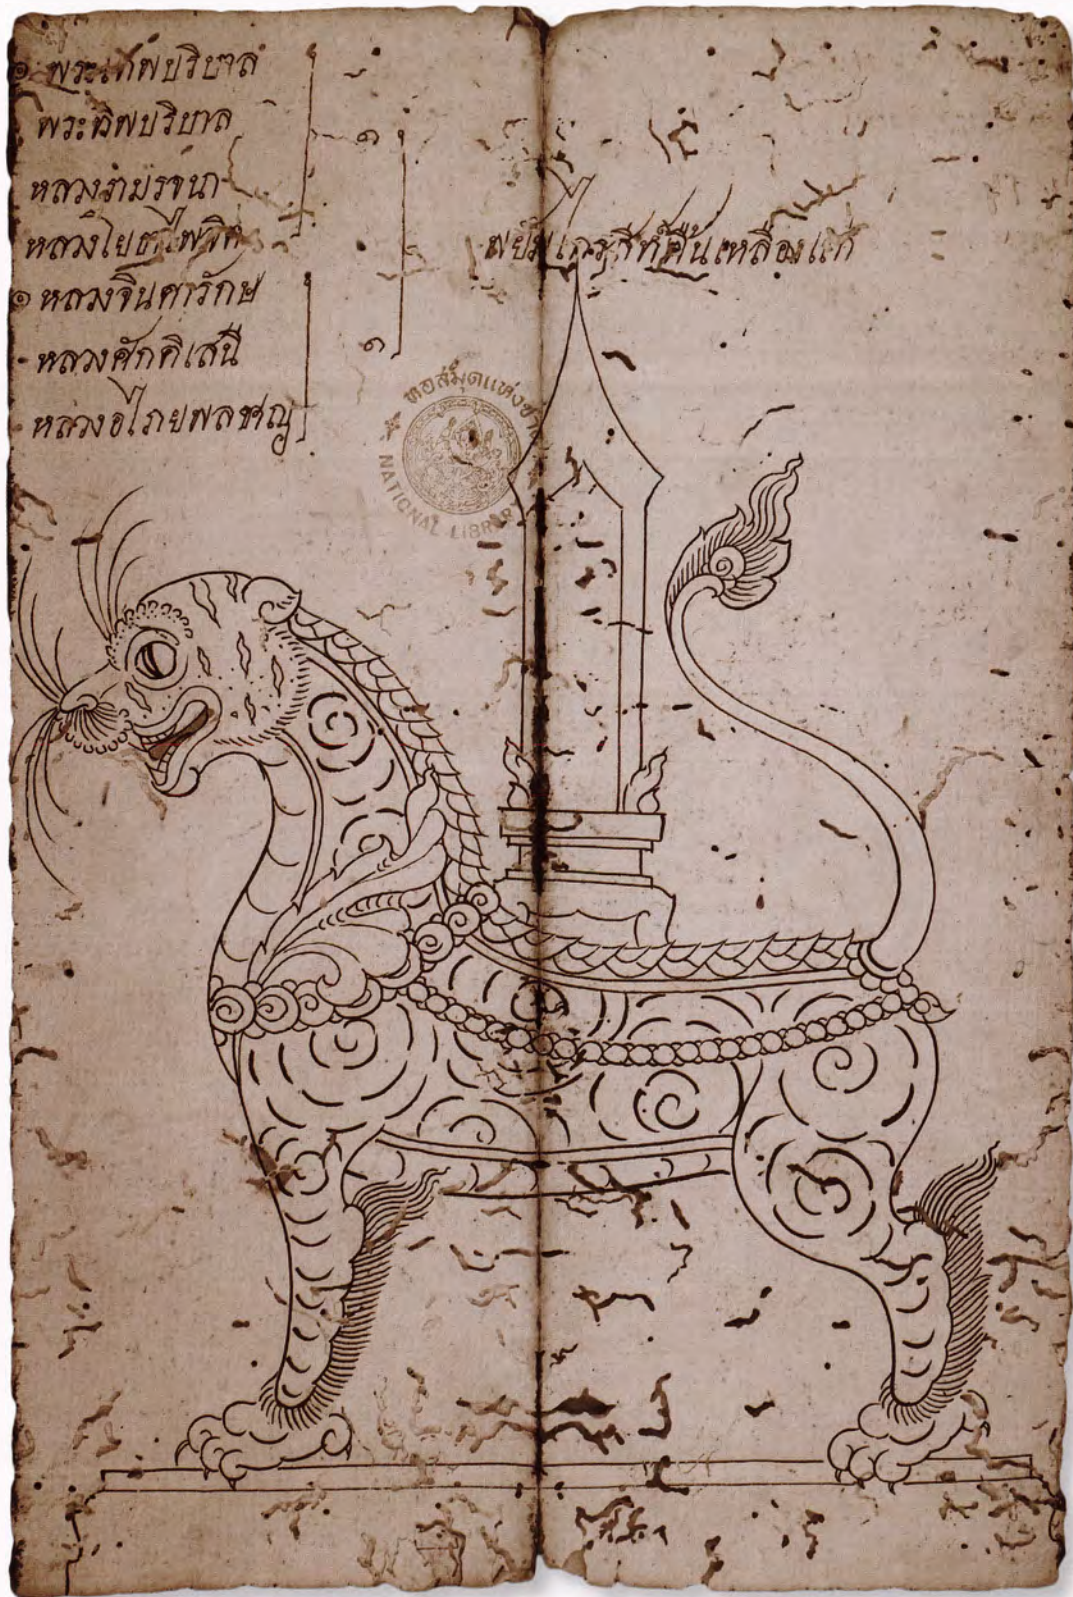 ๏ พระเทพบริบาล
พระพิพบริบาล
หลวงรามรจนา
หลวงโยธาไพจิต
๏ หลวงจินดารักษ
หลวงศักดิเสนี
หลวงอไภยพลชาญ
๑
๑
พยัฆไกรสีห์ พื้นเหลืองแก่
หอสมุดแห่งชา
NATIONAL LIBRAR